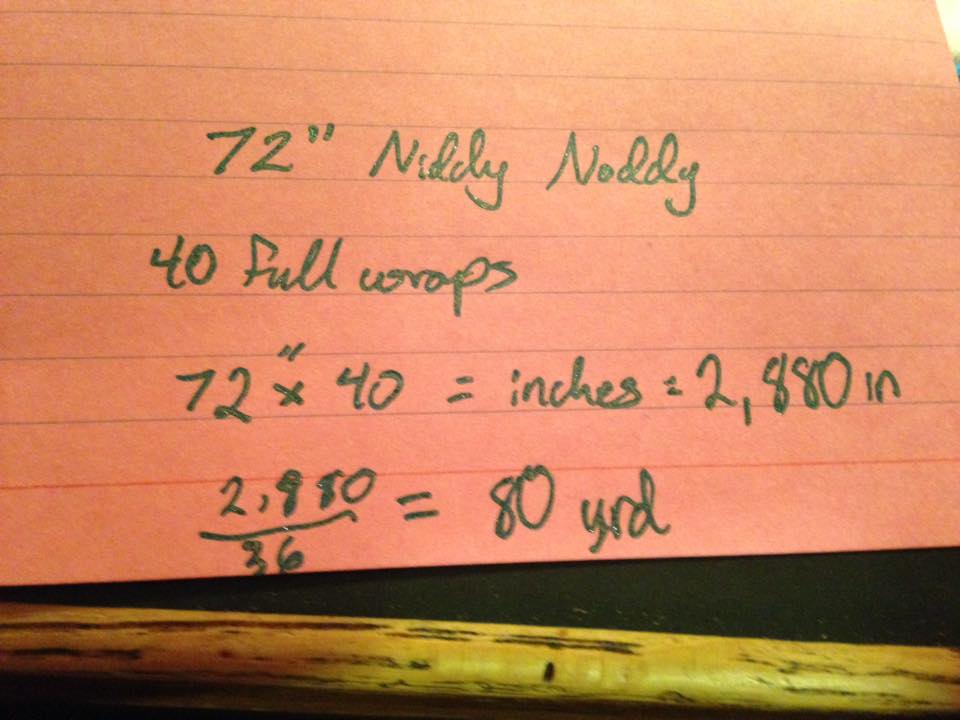 72" Niddy Noddy
40 full wraps
72" x 40 = inches = 2,880 in
2,880 / 36 = 80 yrd